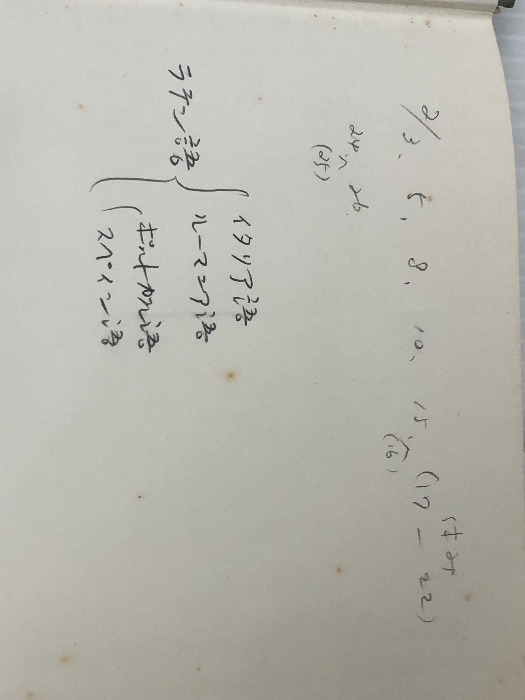 2/3、5、8、10、15、(17 - 22)
(16)
24、26
(25)
ラテン語
イタリア語
ルーマニア語
ポルトガル語
スペイン語